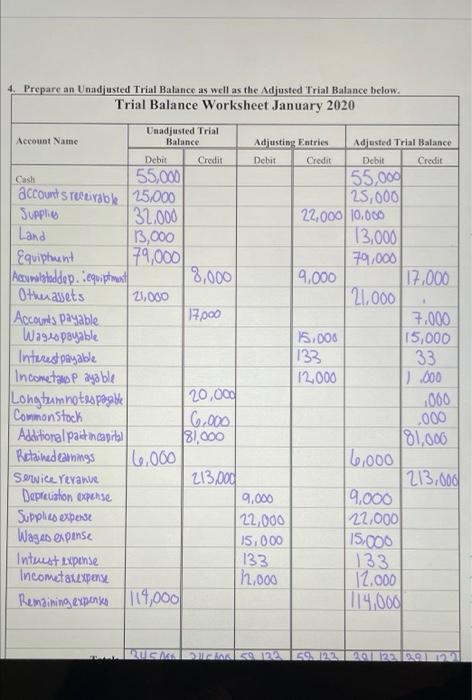 4. Prepare an Unadjusted Trial Balance as well as the Adjusted Trial Balance below.
Trial Balance Worksheet January 2020
Account Name Unadjusted Trial Balance Adjusting Entries Adjusted Trial Balance
Debit Credit Debit Credit Debit Credit
Cash 55,000 55,000
accounts receivable 25,000 25,000
Supplies 32,000 22,000 10,000
Land 13,000 13,000
Equipment 79,000 79,000
dep.:equipment 8,000 9,000 17,000
Other assets 21,000 21,000
Accounts payable 17,000 7.000
Wages payable 15,000 15,000
Interest payable 133 33
Income payable 12,000 ,000
Long term notes payable 20,000 ,000
Common stock 6,000 ,000
Additional paid in capital 81,000 81,000
Retained earnings 6,000 6,000
Service revenue 213,000 213,000
Depreciation expense 9,000 9,000
Supplies expense 22,000 22,000
Wages expense 15,000 15,000
Interest expense 133 133
Income tax expense 12,000 12,000
Remaining expenses 114,000 114,000
59 133 59 133